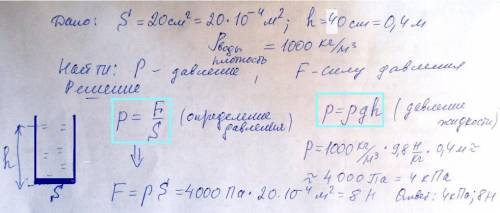 Дано: S = 20 см² = 20·10⁻⁴ м²; h = 40 см = 0,4 м
ρ воды = 1000 кг/м³
плотность
Найти: P - давление, F - силу давления
Решение
P = F/S (определение давления)
p = ρgh (давление жидкости)
P = 1000 кг/м³ · 9,8 Н/кг · 0,4 м ≈
≈ 4000 Па = 4 кПа
h
S
F = pS = 4000 Па · 20·10⁻⁴ м² = 8 Н Ответ: 4 кПа; 8 Н